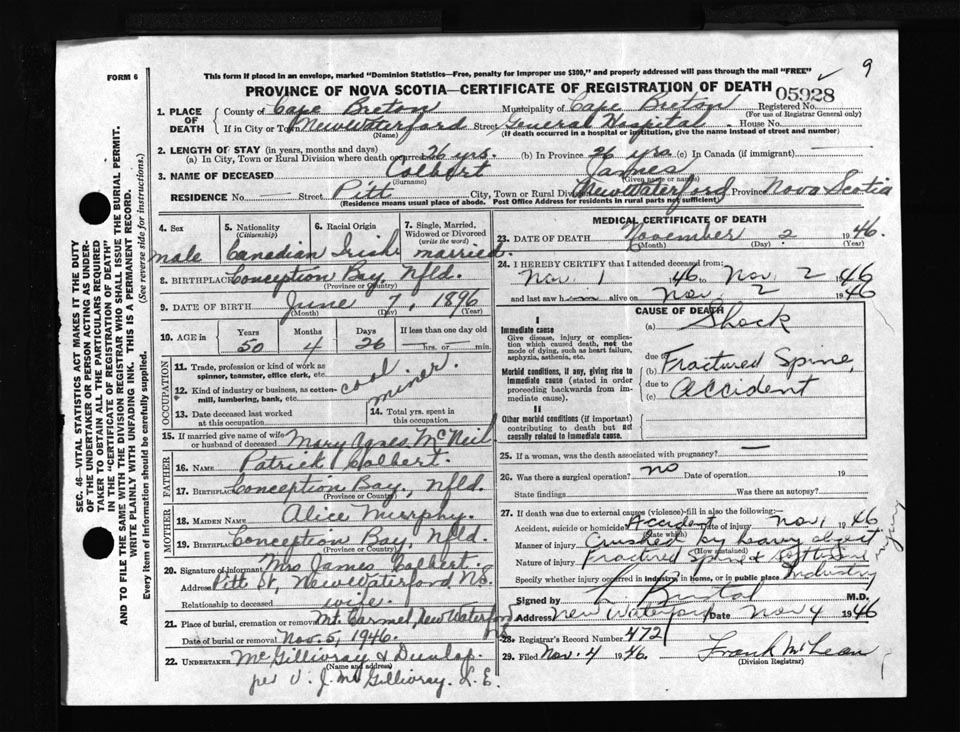 9
FORM 6
This form if placed in an envelope, marked "Dominion Statistics—Free, penalty for improper use $300," and properly addressed will pass through the mail "FREE"
PROVINCE OF NOVA SCOTIA—CERTIFICATE OF REGISTRATION OF DEATH 05928
1. PLACE OF DEATH County of Cape Breton Municipality of Cape Breton Registered No.
(For use of Registrar General only)
If in City or Town New Waterford Street General Hospital House No.
(Name) (If death occurred in a hospital or institution, give the name instead of street and number)
2. LENGTH OF STAY (in years, months and days)
(a) In City, Town or Rural Division where death occurred 26 yrs. (b) In Province 26 yrs (c) In Canada (if immigrant)
3. NAME OF DECEASED Colbert James
(Surname) (Given name or names)
RESIDENCE No. Street Pitt City, Town or Rural Div. New Waterford Province Nova Scotia
(Residence means usual place of abode. Post Office Address for residents in rural parts not sufficient)
4. Sex 5. Nationality (Citizenship) 6. Racial Origin 7. Single, Married, Widowed or Divorced (write the word)
male Canadian Irish married.
8. BIRTHPLACE Conception Bay, Nfld.
(Province or Country)
9. DATE OF BIRTH June 7, 1896
(Month) (Day) (Year)
10. AGE in Years Months Days If less than one day old
50 4 26 hrs. or min.
OCCUPATION
11. Trade, profession or kind of work as spinner, teamster, office clerk, etc.
12. Kind of industry or business, as cotton-mill, lumbering, bank, etc.
coal miner.
13. Date deceased last worked at this occupation
14. Total yrs. spent in this occupation
15. If married give name of wife or husband of deceased Mary Agnes McNeil
FATHER
16. NAME Patrick Colbert.
17. BIRTHPLACE Conception Bay, Nfld.
(Province or Country)
MOTHER
18. MAIDEN NAME Alice Murphy.
19. BIRTHPLACE Conception Bay, Nfld.
(Province or Country)
20. Signature of informant Mrs James Colbert.
Address Pitt St, New Waterford N.S.
Relationship to deceased wife.
21. Place of burial, cremation or removal Mt. Carmel, New Waterford
Date of burial or removal Nov. 5, 1946.
22. UNDERTAKER McGillivray & Dunlap.
(Name and address)
per V. J. McGillivray. L.E.
MEDICAL CERTIFICATE OF DEATH
23. DATE OF DEATH November 2 1946.
(Month) (Day) (Year)
24. I HEREBY CERTIFY that I attended deceased from:
Nov 1 1946 to Nov 2 1946
and last saw him alive on Nov 2 1946
CAUSE OF DEATH
I
Immediate cause
Give disease, injury or complication which caused death, not the mode of dying, such as heart failure, asphyxia, asthenia, etc.
(a) Shock
Morbid conditions, if any, giving rise to immediate cause (stated in order proceeding backwards from immediate cause).
due to Fractured Spine,
due to
(c) Accident
II
Other morbid conditions (if important) contributing to death but not causally related to immediate cause.
25. If a woman, was the death associated with pregnancy? —
26. Was there a surgical operation? no Date of operation 19
State findings Was there an autopsy?
27. If death was due to external causes (violence) fill in also the following:—
Accident, suicide or homicide? Accident Date of injury Nov 1 1946
(State which)
Manner of injury Crushed by heavy object
(How sustained)
Nature of injury Fractured Spine & injury
Specify whether injury occurred in industry, in home, or in public place Industry
Signed by M.D.
Address New Waterford Date Nov 4 1946
28. Registrar's Record Number 472
29. Filed Nov. 4 1946. Frank McLean
(Division Registrar)
SEC. 46—VITAL STATISTICS ACT MAKES IT THE DUTY
OF THE UNDERTAKER OR PERSON ACTING AS UNDER-
TAKER TO OBTAIN ALL THE PARTICULARS REQUIRED
IN THE "CERTIFICATE OF REGISTRATION OF DEATH"
AND TO FILE THE SAME WITH THE DIVISION REGISTRAR WHO SHALL ISSUE THE BURIAL PERMIT.
WRITE PLAINLY WITH UNFADING INK. THIS IS A PERMANENT RECORD.
Every item of information should be carefully supplied. (See reverse side for instructions.)